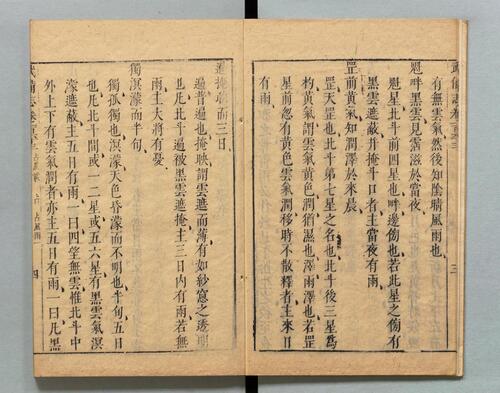 有無雲氣然後知陰晴風雨也
魁畔黑雲見霑滋於當夜
魁星北斗前四星也畔邊傍也若此星之傍有
黑雲遮蔽并掩斗口者主當夜有雨
罡前黃氣知潤澤於來晨
罡天罡也北斗第七星之名也北斗後三星為
杓黃氣謂雲氣黃色潤猶濕也澤雨澤也若罡
星前忽有黃色雲氣潤移時不散釋者主來日
有雨
遍掩映而三日
遍普遍也掩映謂雲遮而薄有如紗窓之透明
也凡北斗遍被黑雲遮掩主三日內有雨若無
雨主大將有憂
獨溟濛而半旬
獨孤獨也溟濛天色昏濛而不明也半旬五日
也凡北斗間或一二星或五六星有黑雲氣溟
濛遮蔽主五日有雨一曰四望無雲惟北斗中
外上下有雲氣潤者亦主五日有雨一曰凡黑
武備志卷
占
四